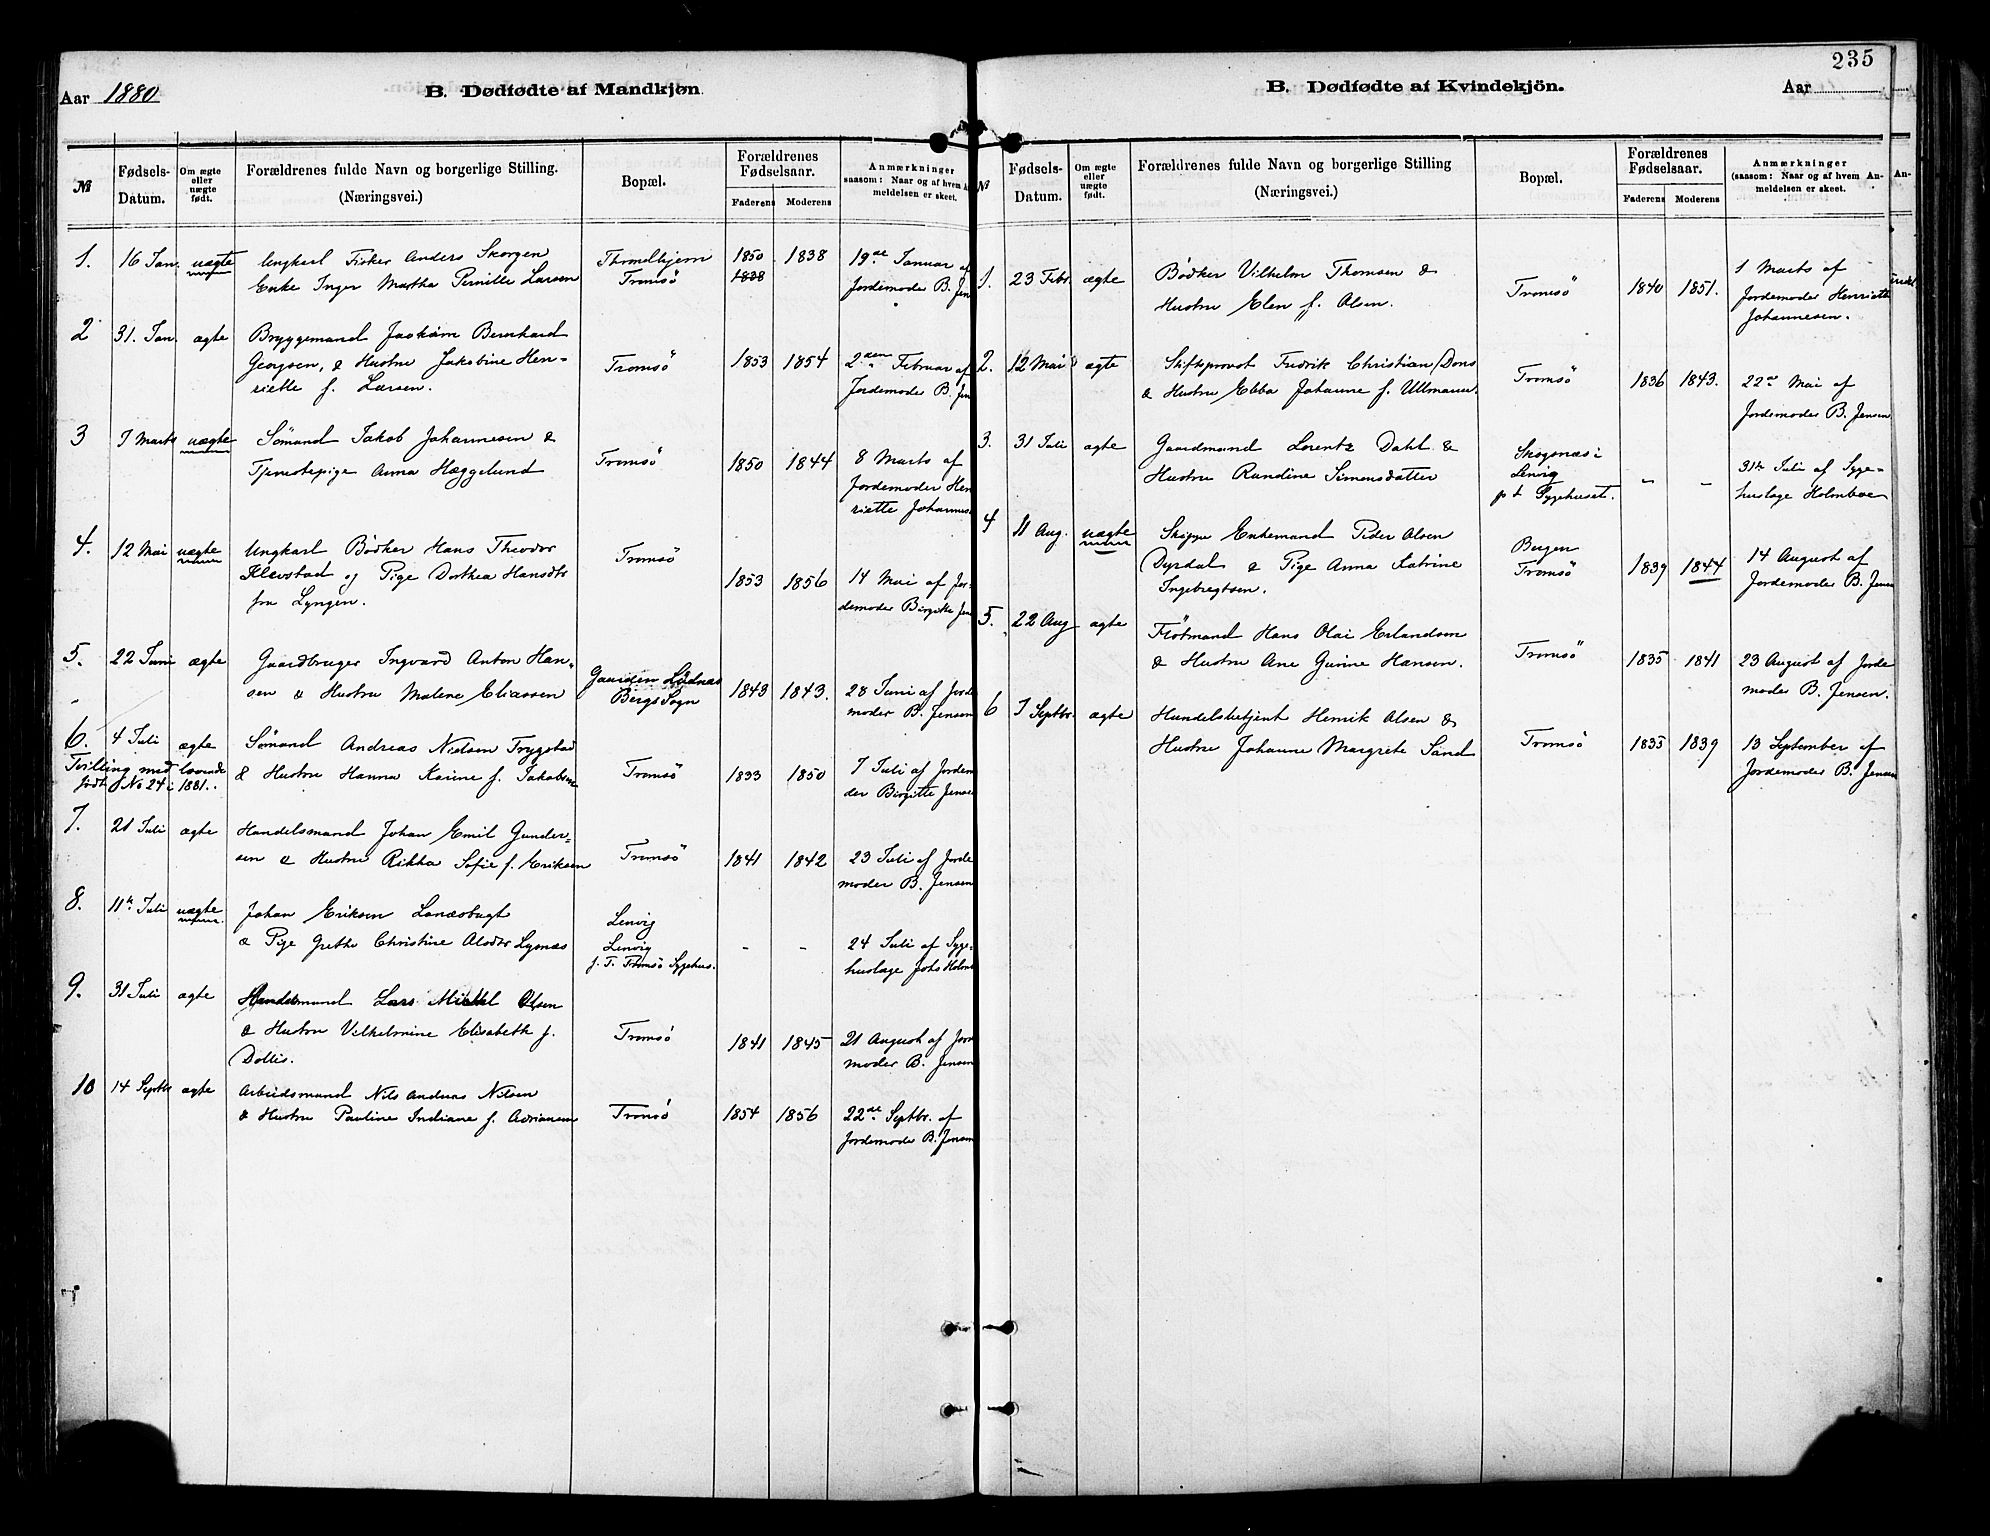 Aar 1880
B. Dødfødte af Mandkjøn
№
Fødsels-
Datum.
Om ægte
eller
uægte
født.
Forældrenes fulde Navn og borgerlige Stilling.
(Næringsvei.)
Bopæl.
Forældrenes
Fødselsaar.
Faderens
Moderens
Anmærkninger
saasom: Naar og af hvem An-
meldelsen er skeet.
1. 16 Jan. uægte Ungkarl Fisker Anders Skorgen Throndhjem 1850 1838 19de Januar af
Enke Inger Martha Pernille Larsen Tromsö 1838 Jordemoder B. Jen
2 31. Jan. ægte Bryggemand Joakim Bernhard
Georgsen, & Hustru Jakobine Hen- Tromsö 1853 1854 2den Februar af
riette f. Larsen. Jordemoder B. Jen
3 7 Marts uægte Sømand Jakob Johannesen &
Tjenestepige Anna Hæggelund Tromsö 1850 1844 8 Marts af
Jordemoder Hen
riette Johannes.
4. 12 Mai uægte Ungkarl Bødker Hans Theodor Tromsö
Klevstad og Pige Dorthea Hansdtr 1853 1856 14 Mai af Jor-
fra Lyngen. demoder Birgitte Jen
5. 22 Juni ægte Gaardbruger Ingvard Anton Han-
sen & Hustru Malene Eliassen Gaarden Lødnæs 1843 1843. 28 Juni af Jorde
Bergs Sogn moder B. Jensen
6. 4 Juli ægte Sømand Andreas Nielsen Trygstad
Tvilling med levende & Hustru Hanna Kairine f. Jakobsen Tromsö 1833 1850 7 Juli af Jordem
født No 24 i 1881. der Birgitte Jensen
7. 21 Juli ægte Handelsmand Johan Emil Gunder-
sen & Hustru Rikka Sofie f. Eriksen Tromsö 1841 1842 23 Juli af Jorde
moder B. Jensen
8. 11te Juli uægte Johan Eriksen Lanæsbugt Lenvig
& Pige Grethe Christine Alsdtr Lysnæs Lenvig - - 24 Juli af Syge-
f. T. Tromsö Sygehus. huslæge Johs Holmb
9. 31 Juli ægte Handelsmand Lars Mikkel Olsen
& Hustru Vilhelmine Elisabeth f. Tromsö 1841 1845 21 August af Jord
Dollis. moder B. Jensen
10 14 Septbr ægte Arbeidsmand Nils Andreas Nilsen
& Hustru Pauline Indiane f. Adriansen Tromsö 1854 1856 22de Septbr. af
Jordemoder B. Jensen
235
B. Dødfødte af Kvindekjön.
Aar
№
Fødsels-
Datum.
Om ægte
eller
uægte
født.
Forældrenes fulde Navn og borgerlige Stilling
(Næringsvei.)
Bopæl.
Forældrenes
Fødselsaar.
Faderens
Moderens
Anmærkninger
(saasom: Naar og af hvem An-
meldelsen er skeet.
An-
1. 23 Febr. ægte Bødker Vilhelm Thomsen & Tromsö 1840 1851. 1 Marts af
Hustru Elen f. Olsen. Jordemoder Henriette
Johannesen.
2. 12 Mai ægte Stiftsprovst Fredrik Christian Dons Tromsö 1836 1843. 22de Mai af
& Hustru Ebba Johanne f. Ullmann. Jordemoder B. Jensen
3. 31 Juli ægte Gaardmand Lorentz Dahl & Skognæs i
Hustru Randine Simonsdatter Lenvig - - 31te Juli af Syge-
p t Sygehuset. huslæge Holmboe
4 11 Aug. uægte Skipper Enkemand Peder Olsen Bergen
Dyrdal & Pige Anna Katrine Tromsö 1839 1844 14 August af
Ingebregtsen. Jordemoder B. Jensen
5. 22 Aug ægte Flötmand Hans Olai Erlandsen
& Hustru Ane Gurine Hansen. Tromsö 1835 1841 23 August af Jorde
moder B. Jensen.
6 7 Septbr. ægte Handelsbetjent Henrik Olsen &
Hustru Johanne Margrete Sand Tromsö 1835 1839 13 September af
Jordemoder B. Jensen